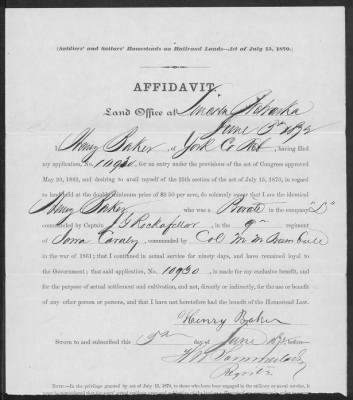 (Soldiers' and Sailors' Homesteads on Railroad Lands—Act of July 15, 1870.)
AFFIDAVIT.
Land Office at Lincoln Nebraska
June 5th 1872
I, Henry Baker, of York Co Neb, having filed
my application, No. 10930, for an entry under the provisions of the act of Congress approved
May 20, 1862, and desiring to avail myself of the 25th section of the act of July 15, 1870, in regard
to land held at the double minimum price of $2.50 per acre, do solemnly swear that I am the identical
Henry Baker who was a Private in the company "D"
commanded by Captain Rockafellor, in the 9th regiment
of Iowa Cavalry, commanded by Col M M Trumbull
in the war of 1861; that I continued in actual service for ninety days, and have remained loyal to
the Government; that said application, No. 10930, is made for my exclusive benefit, and
for the purpose of actual settlement and cultivation, and not, directly or indirectly, for the use or benefit
of any other person or persons, and that I have not heretofore had the benefit of the Homestead Law.
Henry Baker
Sworn to and subscribed this 5th day of June
Register
NOTE.—In the privilege granted by act of July 15, 1870, to those who have been engaged in the military or naval service, it